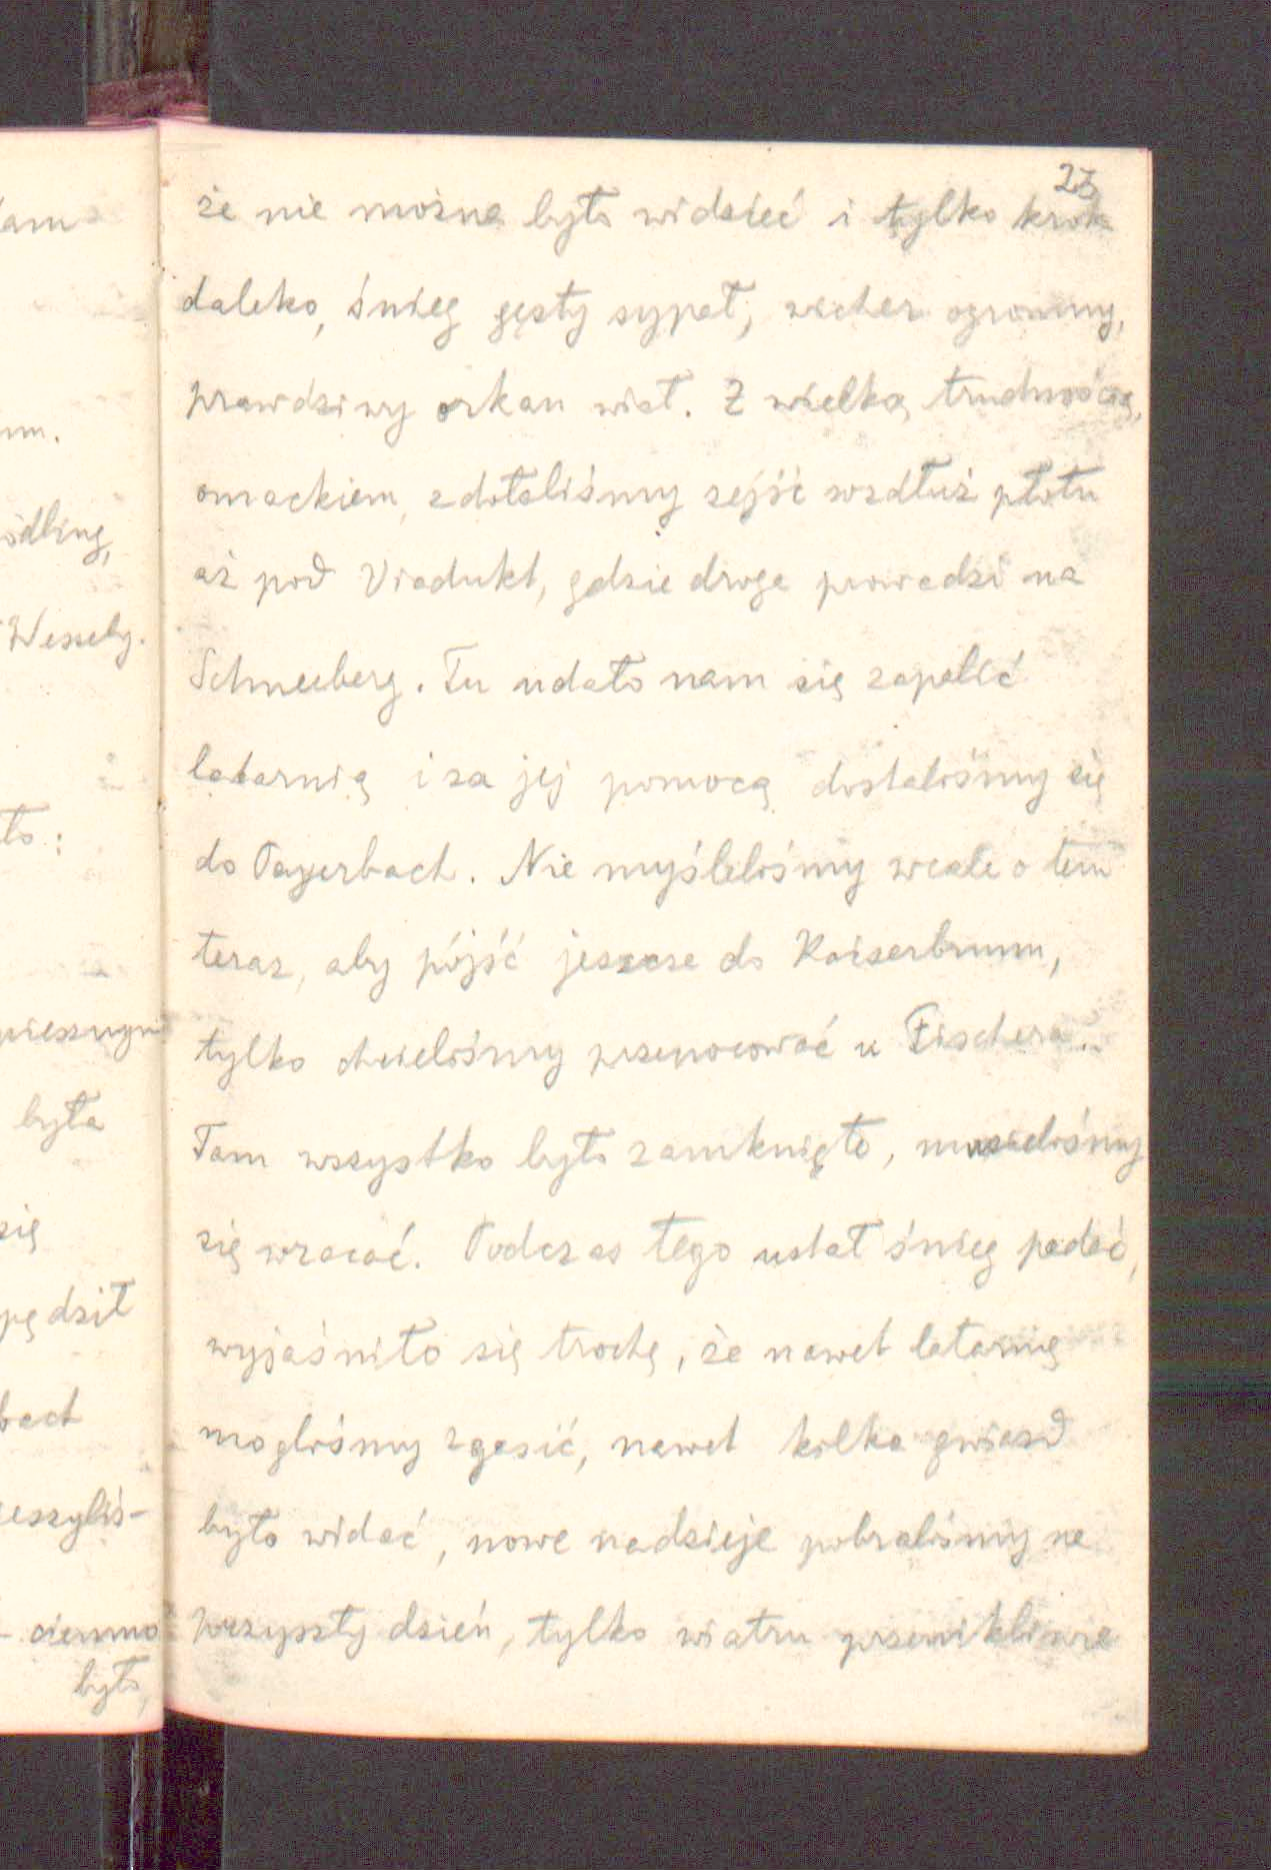 23
że nie można było widzieć i tylko krok
daleko, śnieg gęsty sypał, wicher ogromny,
prawdziwy orkan wiał. Z wielką trudnością,
omackiem, zdołaliśmy zejść wzdłuż płotu
aż pod Viadukt, gdzie droga prowadzi na
Schneeberg. Tu udało nam się zapalić
latarnię i za jej pomocą dostaliśmy się
do Payerbach. Nie myśleliśmy wcale o tem
teraz, aby pójść jeszcze do Kaiserbrunn,
tylko chcieliśmy przenocować u Fischera.
Tam wszystko było zamknięto, musieliśmy
się wracać. Podczas tego ustał śnieg padać,
wyjaśniło się trochę, że nawet latarnię
mogliśmy zgasić, nawet kilka gwiazd
było widać, nowe nadzieje pobraliśmy na
przyszły dzień, tylko wiatru przenikliwie
ödling,
Wessely.
ło:
była
się
pędził
bach
eszyliś-
ciemno
było,